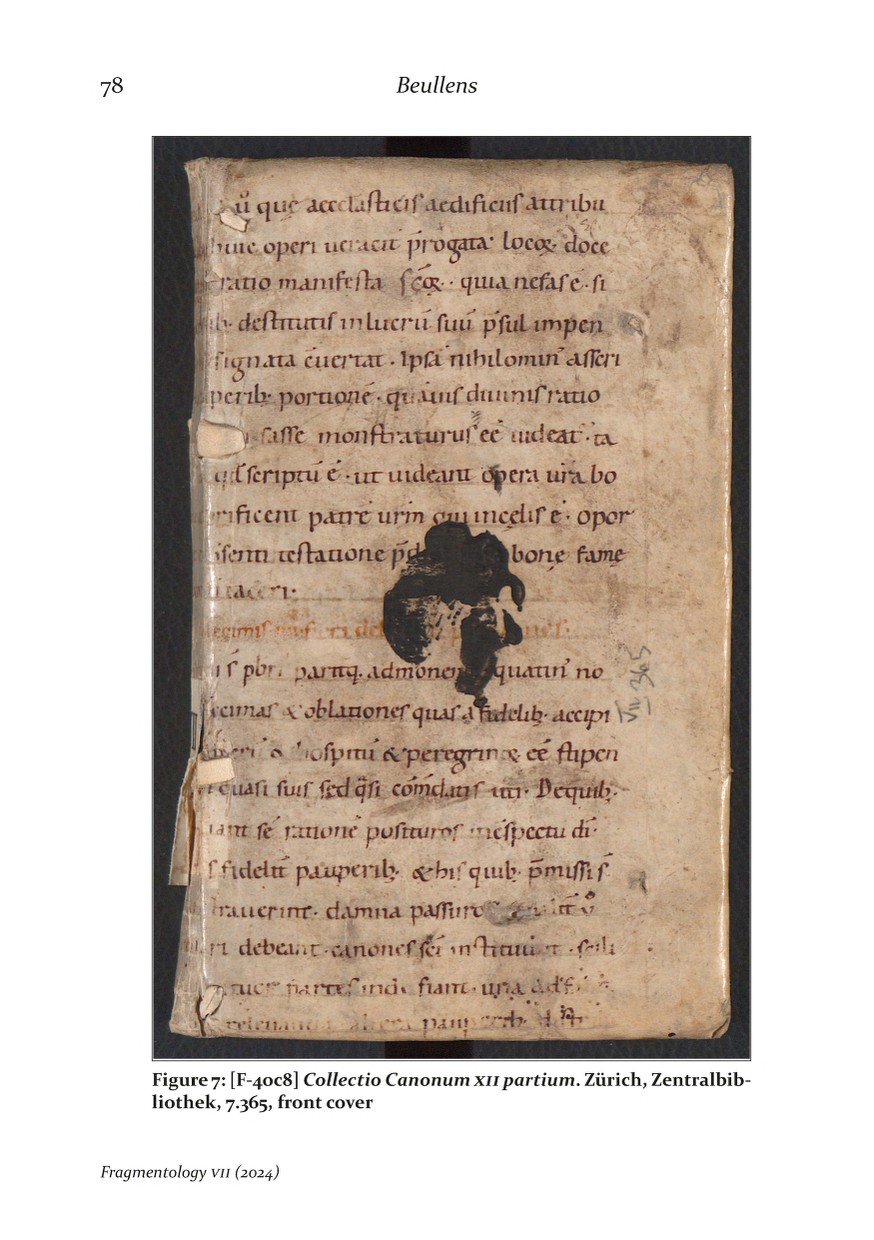 78
Beullens
que aecclasticis aedificiis attribu
huic operi ueracit p̄rogata locoꝝ doce
ratio manifesta sc̄oꝝ · quia nefas ē · si
destitutis in lucrū suū p̄sul impen
signata euertat · Ipsa nihilomin᾽ asseri
perib; portionē · quāuis diuinis ratio
sasse monstraturus eē uideat᾽ · ta
scriptū ē · ut uideant opera ur̄a bo
rificent patrē urm̄ qui in cęlis ē · opor
testatione bonę famę
taceri·
pbr̄i admonen quatin᾽ no
ecimas & oblationes quas a fidelib; accipi
hospitū & peregrinoꝝ eē stipen
quasi suis sed q̄si cōm̄datis uti · De quib;·
iant se rationē posituros inc̄spectu dī·
fidelit̄ pauperib; · & his quib; p̄missi s̄
trauerint · damna passuros
ri debeant · canones sc̄i instituunt · scili
tuor partes inde fiant · una
VII 365
Figure 7: [F-40c8] Collectio Canonum XII partium. Zürich, Zentralbib-
liothek, 7.365, front cover
Fragmentology VII (2024)